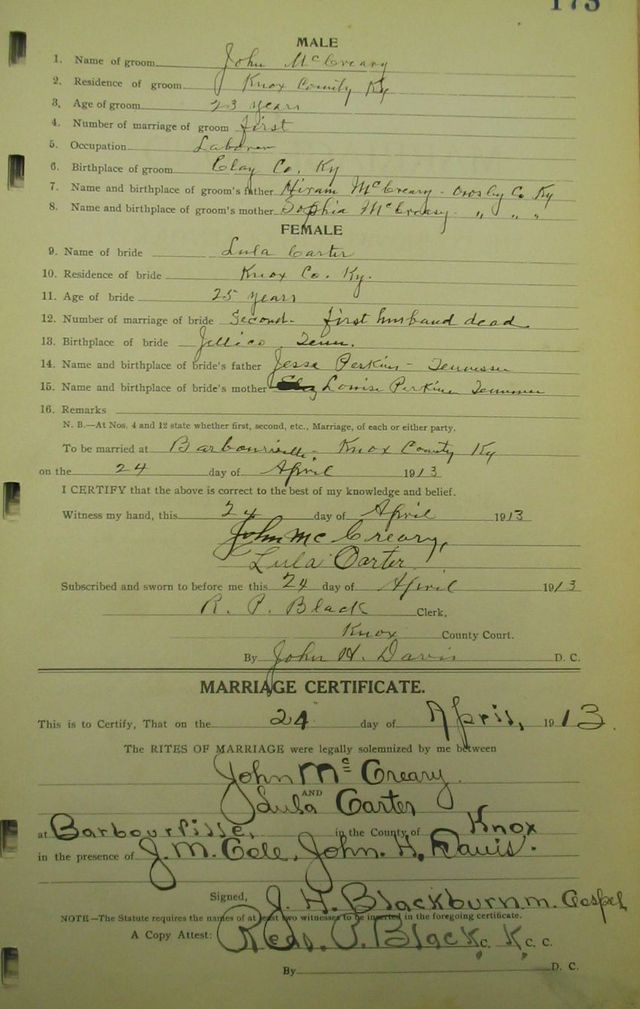 173
MALE
1. Name of groom John McCreary
2. Residence of groom Knox County Ky
3, Age of groom 23 years
4. Number of marriage of groom first
5. Occupation Laborer
6. Birthplace of groom Clay Co. Ky
7. Name and birthplace of groom's father Hiram McCreary - Ky
8. Name and birthplace of groom's mother Sophia McCreary " " "
FEMALE
9. Name of bride Lula Carter
10. Residence of bride Knox Co. Ky.
11. Age of bride 25 years
12. Number of marriage of bride Second - first husband dead
13. Birthplace of bride Jellico Tenn.
14. Name and birthplace of bride's father Jessa Perkins - Tennessee
15. Name and birthplace of bride's mother Louisa Perkins Tennessee
16. Remarks
N. B.—At Nos. 4 and 12 state whether first, second, etc., Marriage, of each or either party.
To be married at Barbourville - Knox County Ky
on the 24 day of April 1913
I CERTIFY that the above is correct to the best of my knowledge and belief.
Witness my hand, this 24 day of April 1913
John McCreary,
Lula Carter
Subscribed and sworn to before me this 24 day of April 1913
R. P. Black Clerk,
Knox County Court.
By John H. Davis D. C.
MARRIAGE CERTIFICATE.
This is to Certify, That on the 24 day of April, 1913.
The RITES OF MARRIAGE were legally solemnized by me between
John McCreary.
AND
Lula Carter
at Barbourville, in the County of Knox
in the presence of J. M. Cole, John. H. Davis.
Signed, J. H. Blackburn m. Gospel
NOTE—The Statute requires the names of at least two witnesses to be inserted in the foregoing certificate.
A Copy Attest: Read. P. Black C. K. C. C.
By D. C.